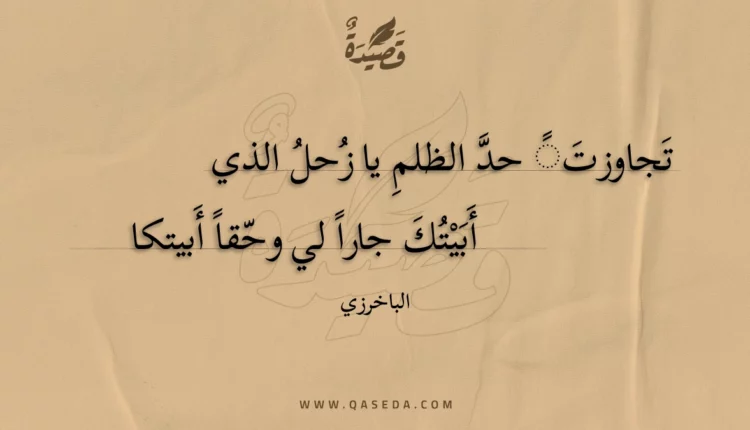 قَصِيْدَةٌ
تَجاوزتَ ً حدَّ الظلمِ يا زُحلُ الذي
أَبَيْتُكَ جاراً لي وحّقاً أَبيتكا
الباخرزي
WWW.QASEDA.COM